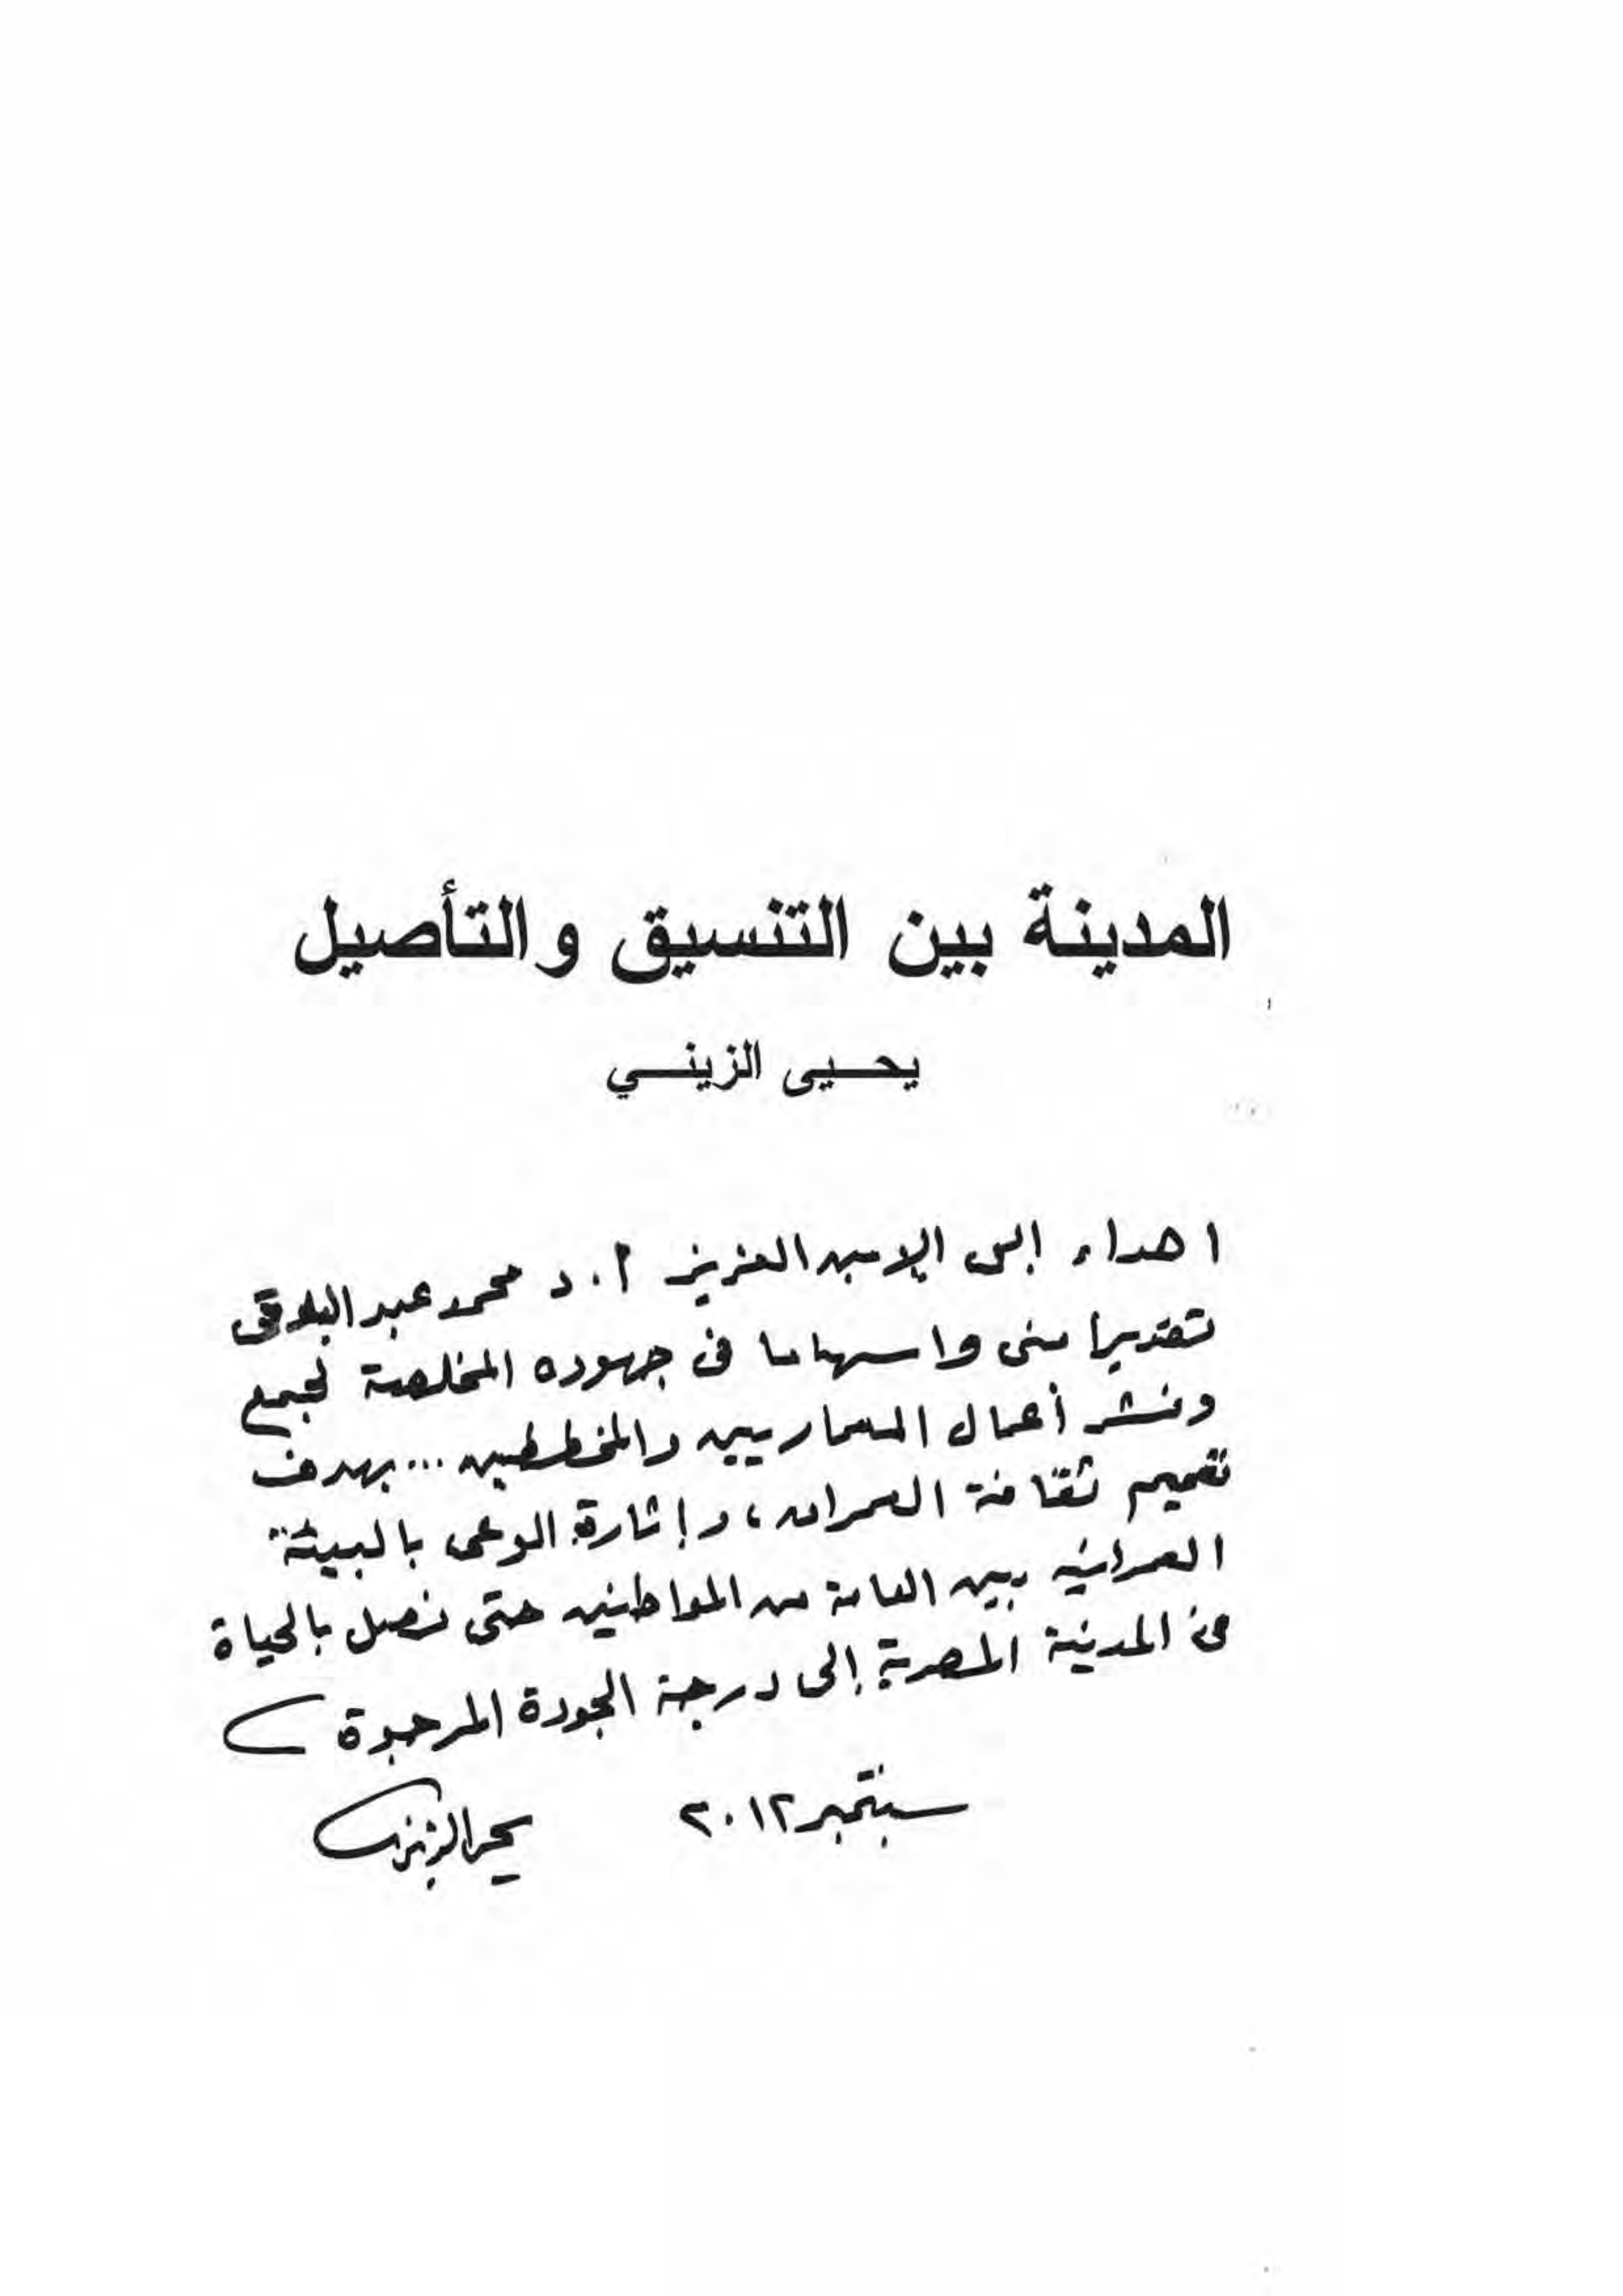 المدينة بين التنسيق والتأصيل
يحيى الزيني
اهداء إلى الابن العزيز أ.د محمد عبد الباقى
تقديرا منى واسهاما فى جهوده المخلصة لجمع
ونشر أعمال المعماريين والمخططين ... بهدف
تعميم ثقافة العمران، وإثارة الوعى بالبيئة
العمرانيه بين العامة من المواطنين حتى نصل بالحياة
فى المدينة المصرية إلى درجة الجودة المرجوة
سبتمبر ٢٠١٢ يحيى الزينى